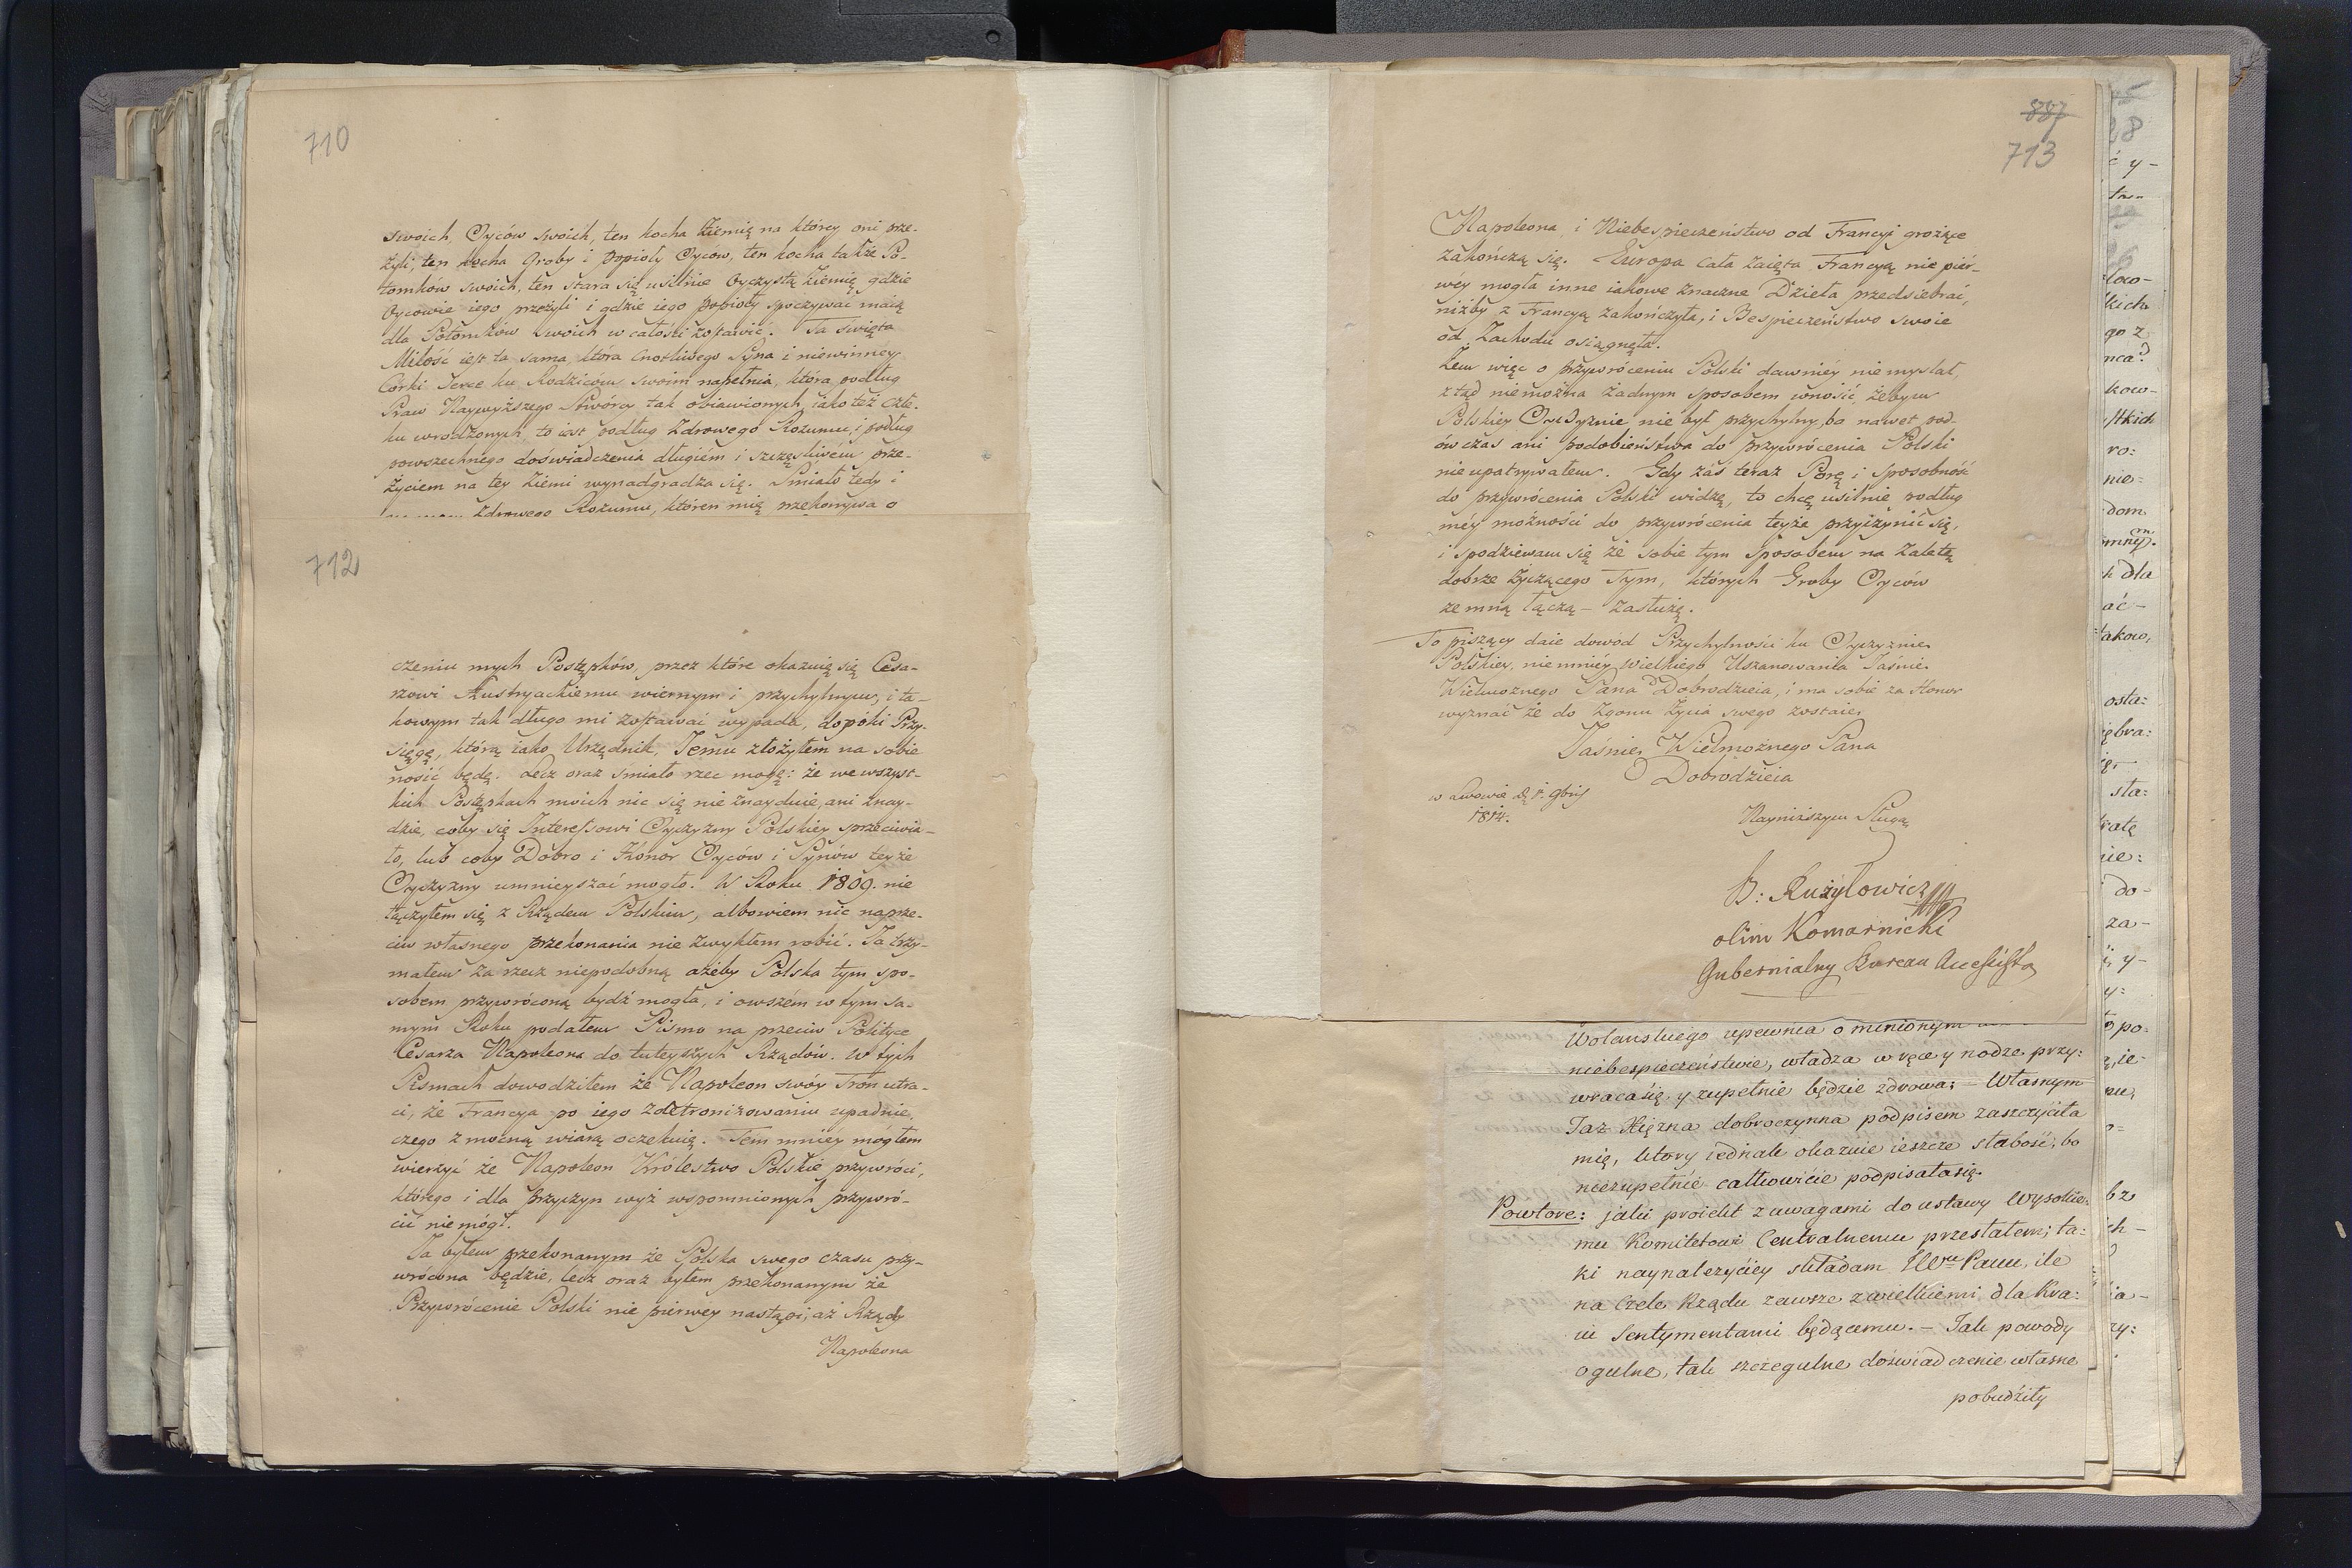 710
swoich, Oyców swoich, ten kocha Ziemię na którey oni prze-
żyli, ten kocha Groby i popioły Oyców, ten kocha także Po-
tomków swoich, ten stara się usilnie Oyczystą Ziemię, gdzie
Oycowie iego przeżyli i gdzie iego popioły spoczywać maią
dla Potomków swoich w całości zostawić. Ta święta
Miłość iest ta sama, która Cnotliwego Syna i niewinney
Córki Serce ku Rodzicom swoim napełnia, która podług
Praw Naywyższego Stwórcy tak obiawionych, iako też Czło-
ku wrodzonych, to iest podług Zdrowego Rozumu, i podług
powszechnego doświadczenia długiém i szczęśliwém prze-
życiem na tey Ziemi wynadgradza się. Śmiało tedy i
Zdrowego Rozumu, któren mię przekonywa o
712
czeniu mych Postępków, przez które okazuię się Cesa-
rzowi Austryackiemu wiernym i przychylnym, i ta-
kowym tak długo mi zostawać wypada, dopóki Przy-
sięgę, którą iako Urzędnik, Jemu złożyłem na sobie
nosić będę. Lecz oraz śmiało rzec mogę: że we wszyst-
kich Postępkach moich nic się nie znayduie, ani znay-
dzie, coby się Interessowi Oyczyzny Polskiey sprzeciwia-
ło, lub coby Dobro i Honor Oyców i Synów teyże
Oyczyzny umnieyszać mogło. W Roku 1809. nie
łączyłem się z Rządem Polskim, albowiem nic naprze-
ciw własnego przekonania nie zwykłem robić. Ja trzy-
małem za rzecz niepodobną ażeby Polska tym spo-
sobem przywróconą bydź mogła, i owszém w tym sa-
mym Roku podałem Pismo na przeciw Polityce
Cesarza Napoleona do tuteyszych Rządów. W tych
Pismach dowodziłem że Napoleon swóy Tron utra-
ci, że Francya po iego zdetronizowaniu upadnie,
czego z mocną wiarą oczekuię. Tem mniéy mógłem
wierzyć że Napoleon Królestwo Polskie przywróci,
którego i dla przyczyn wyż wspomnionych przywró-
cić nie mógł.
Ja byłem przekonanym że Polska swego czasu przy-
wrócona będzie, lecz oraz byłem przekonanym że
Przywrócenie Polski nie pierwey nastąpi, aż Rządy
Napoleona
887
713
Napoleona i Niebespieczeństwo od Francyi grożące
zakończą się. Europa cała zaięta Francyą nie piér-
wéy mogła inne iakowe znaczne Dzieła przedsiebrać,
niżby z Francyą zakończyła, i Bespieczeństwo swoie
od Zachodu osiągnęła.
Żem więc o przywróceniu Polski dawniéy nie myślał,
ztąd nie można żadnym sposobem wnosić, żebym
Polskiey Oyczyznie nie był przychylny, bo nawet pod-
ówczas ani podobieństwa do przywrócenia Polski
nie upatrywałem. Gdy zaś teraz Porę i Sposobność
do przywrócenia Polski widzę, to chcę usilnie podług
méy możności do przywrócenia teyże przyczynić się,
i spodziewam się że sobie tym Sposobem na Zaletę
dobrze Życzącego Tym, których Groby Oyców
ze mną łączą – zasłużę.
To piszący daie dowód Przychylności ku Oyczyznie
Polskiey, nie mniéy wielkiego Uszanowania Jaśnie
Wielmożnego Pana Dobrodzieia, i ma sobie za Honor
wyznać że do Zgonu Życia swego zostaie
Jaśnie Wielmożnego Pana
Dobrodzieia
w Lwowie
1814.
Nayniższym Sługą
B: Rużyłowicz
olim Komarnicki
Gubernialny Bureau Accessista
Wolanskiego upewnia o minionym
niebespieczeństwie, władza w ręce y nodze przy:
wraca się, y zupełnie będzie zdrowa; – Własnym
Taż Xiężna dobroczynna podpisem zaszczyciła
mię, ktory iednak okazuie ieszcze słabość; bo
niezupełnie całkowicie podpisała się.
Powtore: jaki proiekt z uwagami do ustawy Wysokie:
mu Komitetowi Centralnemu przesłałem; ta:
ki naynależyciey składam JWmu Panu, ile
na Czele Rządu zawsze z wielkiemi dla Kra:
iu Sentymentami będącemu. – Tak powody
ogulne, tak szczegulne doświadczenie własne
pobudziły